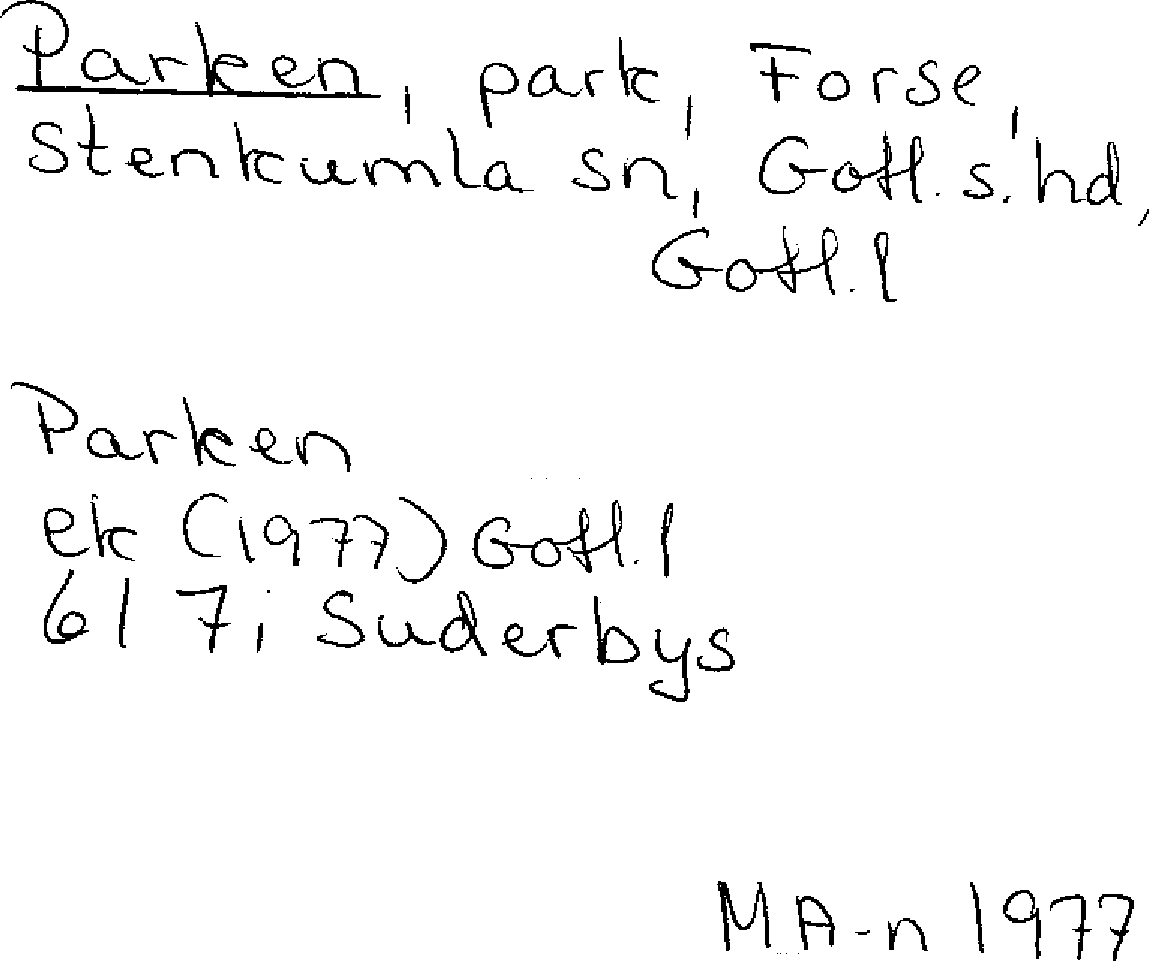 Parken, park, Forse,
Stenkumla sn, Gotl. s. hd,
Gotl. l
Parken
ek (1977) Gotl. l
6I 7i Suderbys
M A-n 1977